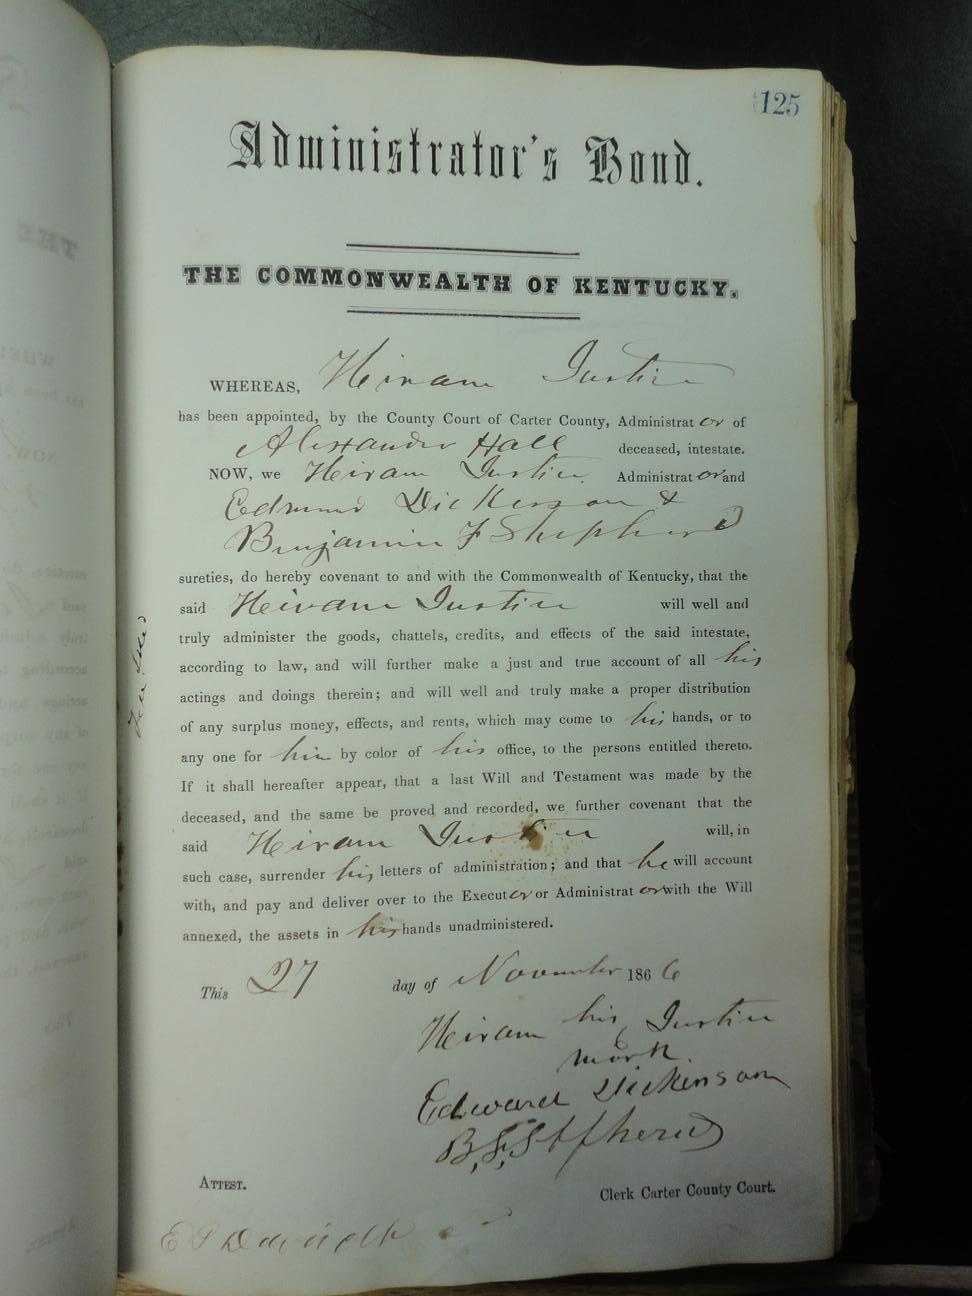 125
Administrator's Bond.
THE COMMONWEALTH OF KENTUCKY.
WHEREAS, Hiram Justice
has been appointed, by the County Court of Carter County, Administrator of
Alexander Hall deceased, intestate.
NOW, we Hiram Justice Administrator and
Edmund Dickerson &
Benjamin F Shepherd
sureties, do hereby covenant to and with the Commonwealth of Kentucky, that the
said Hiram Justice will well and
truly administer the goods, chattels, credits, and effects of the said intestate,
according to law, and will further make a just and true account of all his
actings and doings therein; and will well and truly make a proper distribution
of any surplus money, effects, and rents, which may come to his hands, or to
any one for him by color of his office, to the persons entitled thereto.
If it shall hereafter appear, that a last Will and Testament was made by the
deceased, and the same be proved and recorded, we further covenant that the
said Hiram Justice will, in
such case, surrender his letters of administration; and that he will account
with, and pay and deliver over to the Executor or Administrator with the Will
annexed, the assets in his hands unadministered.
This 27 day of November 1866
Hiram his Justice
mark.
Edward Dickenson
B. F.
ATTEST.
Clerk Carter County Court.